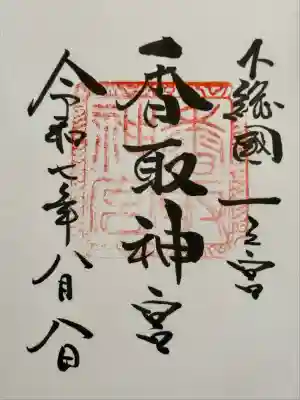 下総國一之宮
香取神宮
令和七年八月八日